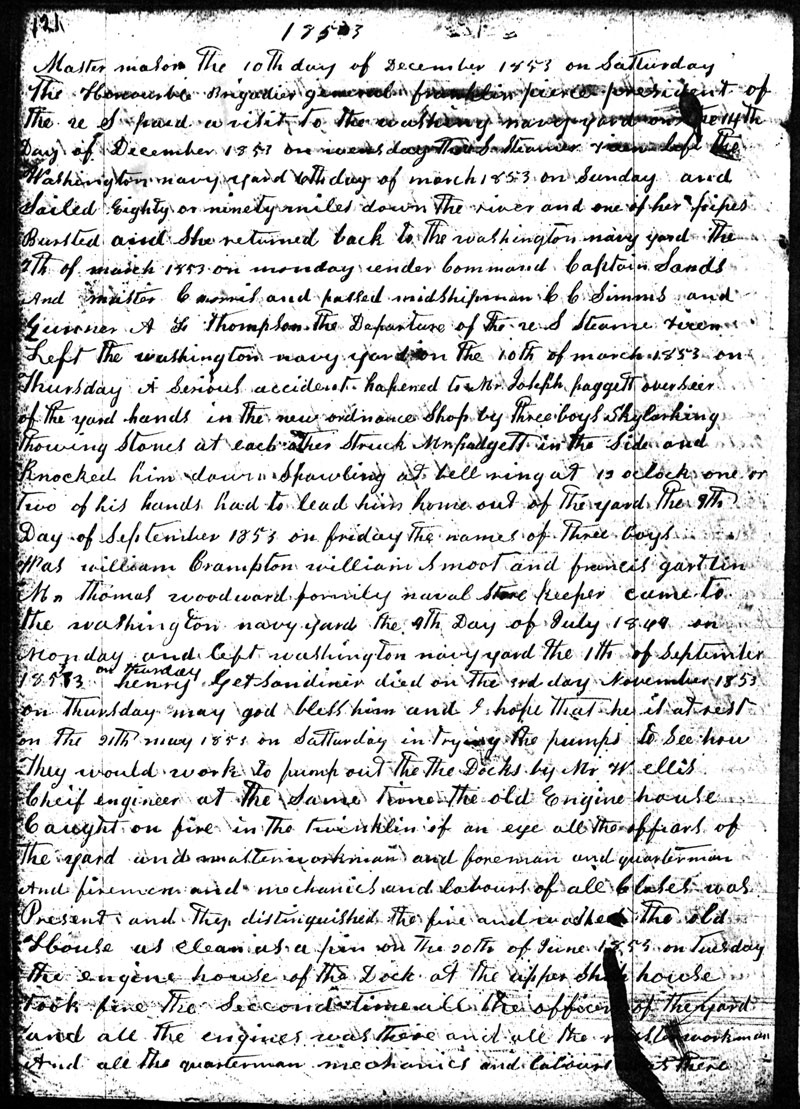 121
1853
Master mason The 10th day of December 1853 on Satturday
The Honourble Brigadier general franklin pierce president of
the u S paid a visit to the washing navy yard on the 14th
Day of December 1853 on wensday The S Steamer vixen left the
Washington navy yard 6th day of march 1853 on Sunday and
Sailed Eighty or ninety miles down the river and one of her pipes
Bursted and She returned back to the washington navy yard the
7th of march 1853 on monday under Command Captain Sands
And master C morris and passed midshipman C C Simms and
Gunner A F Thompson the Departure of the u S Steame vixen
Left the washington navy yard on the 10th of march 1853 on
Thursday A Serious accident hapened to Mr Joseph paggett overseer
of the yard hands in the new ordnance Shop by three boys Skylarking
Thowing Stones at each other Struck Mr padgett in the Side and
Knocked him down Spawling at bell ring at 12 oclock one or
two of his hands had to lead him home out of the yard the 9th
Day of September 1853 on friday the names of Three boys
Was william Crampton william Smoot and francis gartlin
Mr thomas woodward formily naval Store keeper came to
the washington navy yard the 9th Day of July 1849 on
Monday and left washington navy yard the 1th of September
1853 on thursday henry Get Sandiner died on the 3rd day November 1853
on thursday may god bless him and I hope that he is at rest
on the 21th may 1853 on Satturday in trying the pumps to See how
They would work to pump out the the Docks by Mr W ellis
Cheif engineer at the Same time the old Engine house
Caught on fire in the twinklin of an eye all the officars of
the yard and master workman and foreman and quarterman
And firemen and mechanics and labours of all Clases was
Present and They distinguished the fire and washed the old
House as clean as a pin on the 20th of June 1853 on Tuesday
the engine house of the Dock at the upper Ship house
took fire the Second time all the officers of the yard
and all the engines was there and all the master workman
And all the quarterman mechanics and labours was there